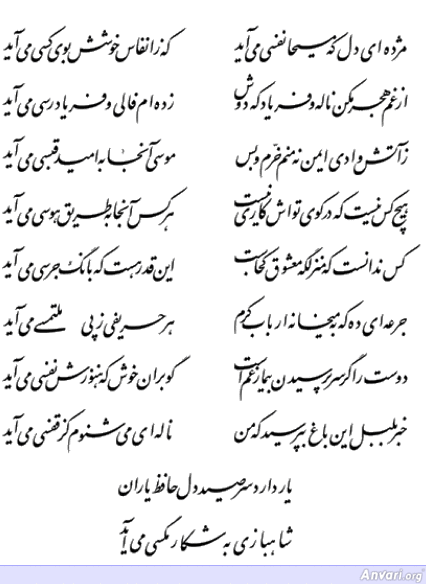 مژده ای دل که مسیحا نفسی می آید که ز انفاس خوشش بوی کسی می آید
از غم هجر مکن ناله و فریاد که دوش زده ام فالی و فریادرسی می آید
ز آتش وادی ایمن نه منم خرم و بس موسی آنجا به امید قبسی می آید
هیچ کس نیست که در کوی تواش کاری نیست هر کس آنجا به طریق هوسی می آید
کس ندانست که منزلگه معشوق کجاست این قدر هست که بانگ جرسی می آید
جرعه ای ده که به میخانه ارباب کرم هر حریفی ز پی ملتمسی می آید
دوست را گر سر پرسیدن بیمار غم است گو بران خوش که هنوزش نفسی می آید
خبر بلبل این باغ بپرسید که من ناله ای می شنوم کز قفسی می آید
یار دارد سر صید دل حافظ یاران
شاهبازی به شکار مگسی می آید
Anvari.org